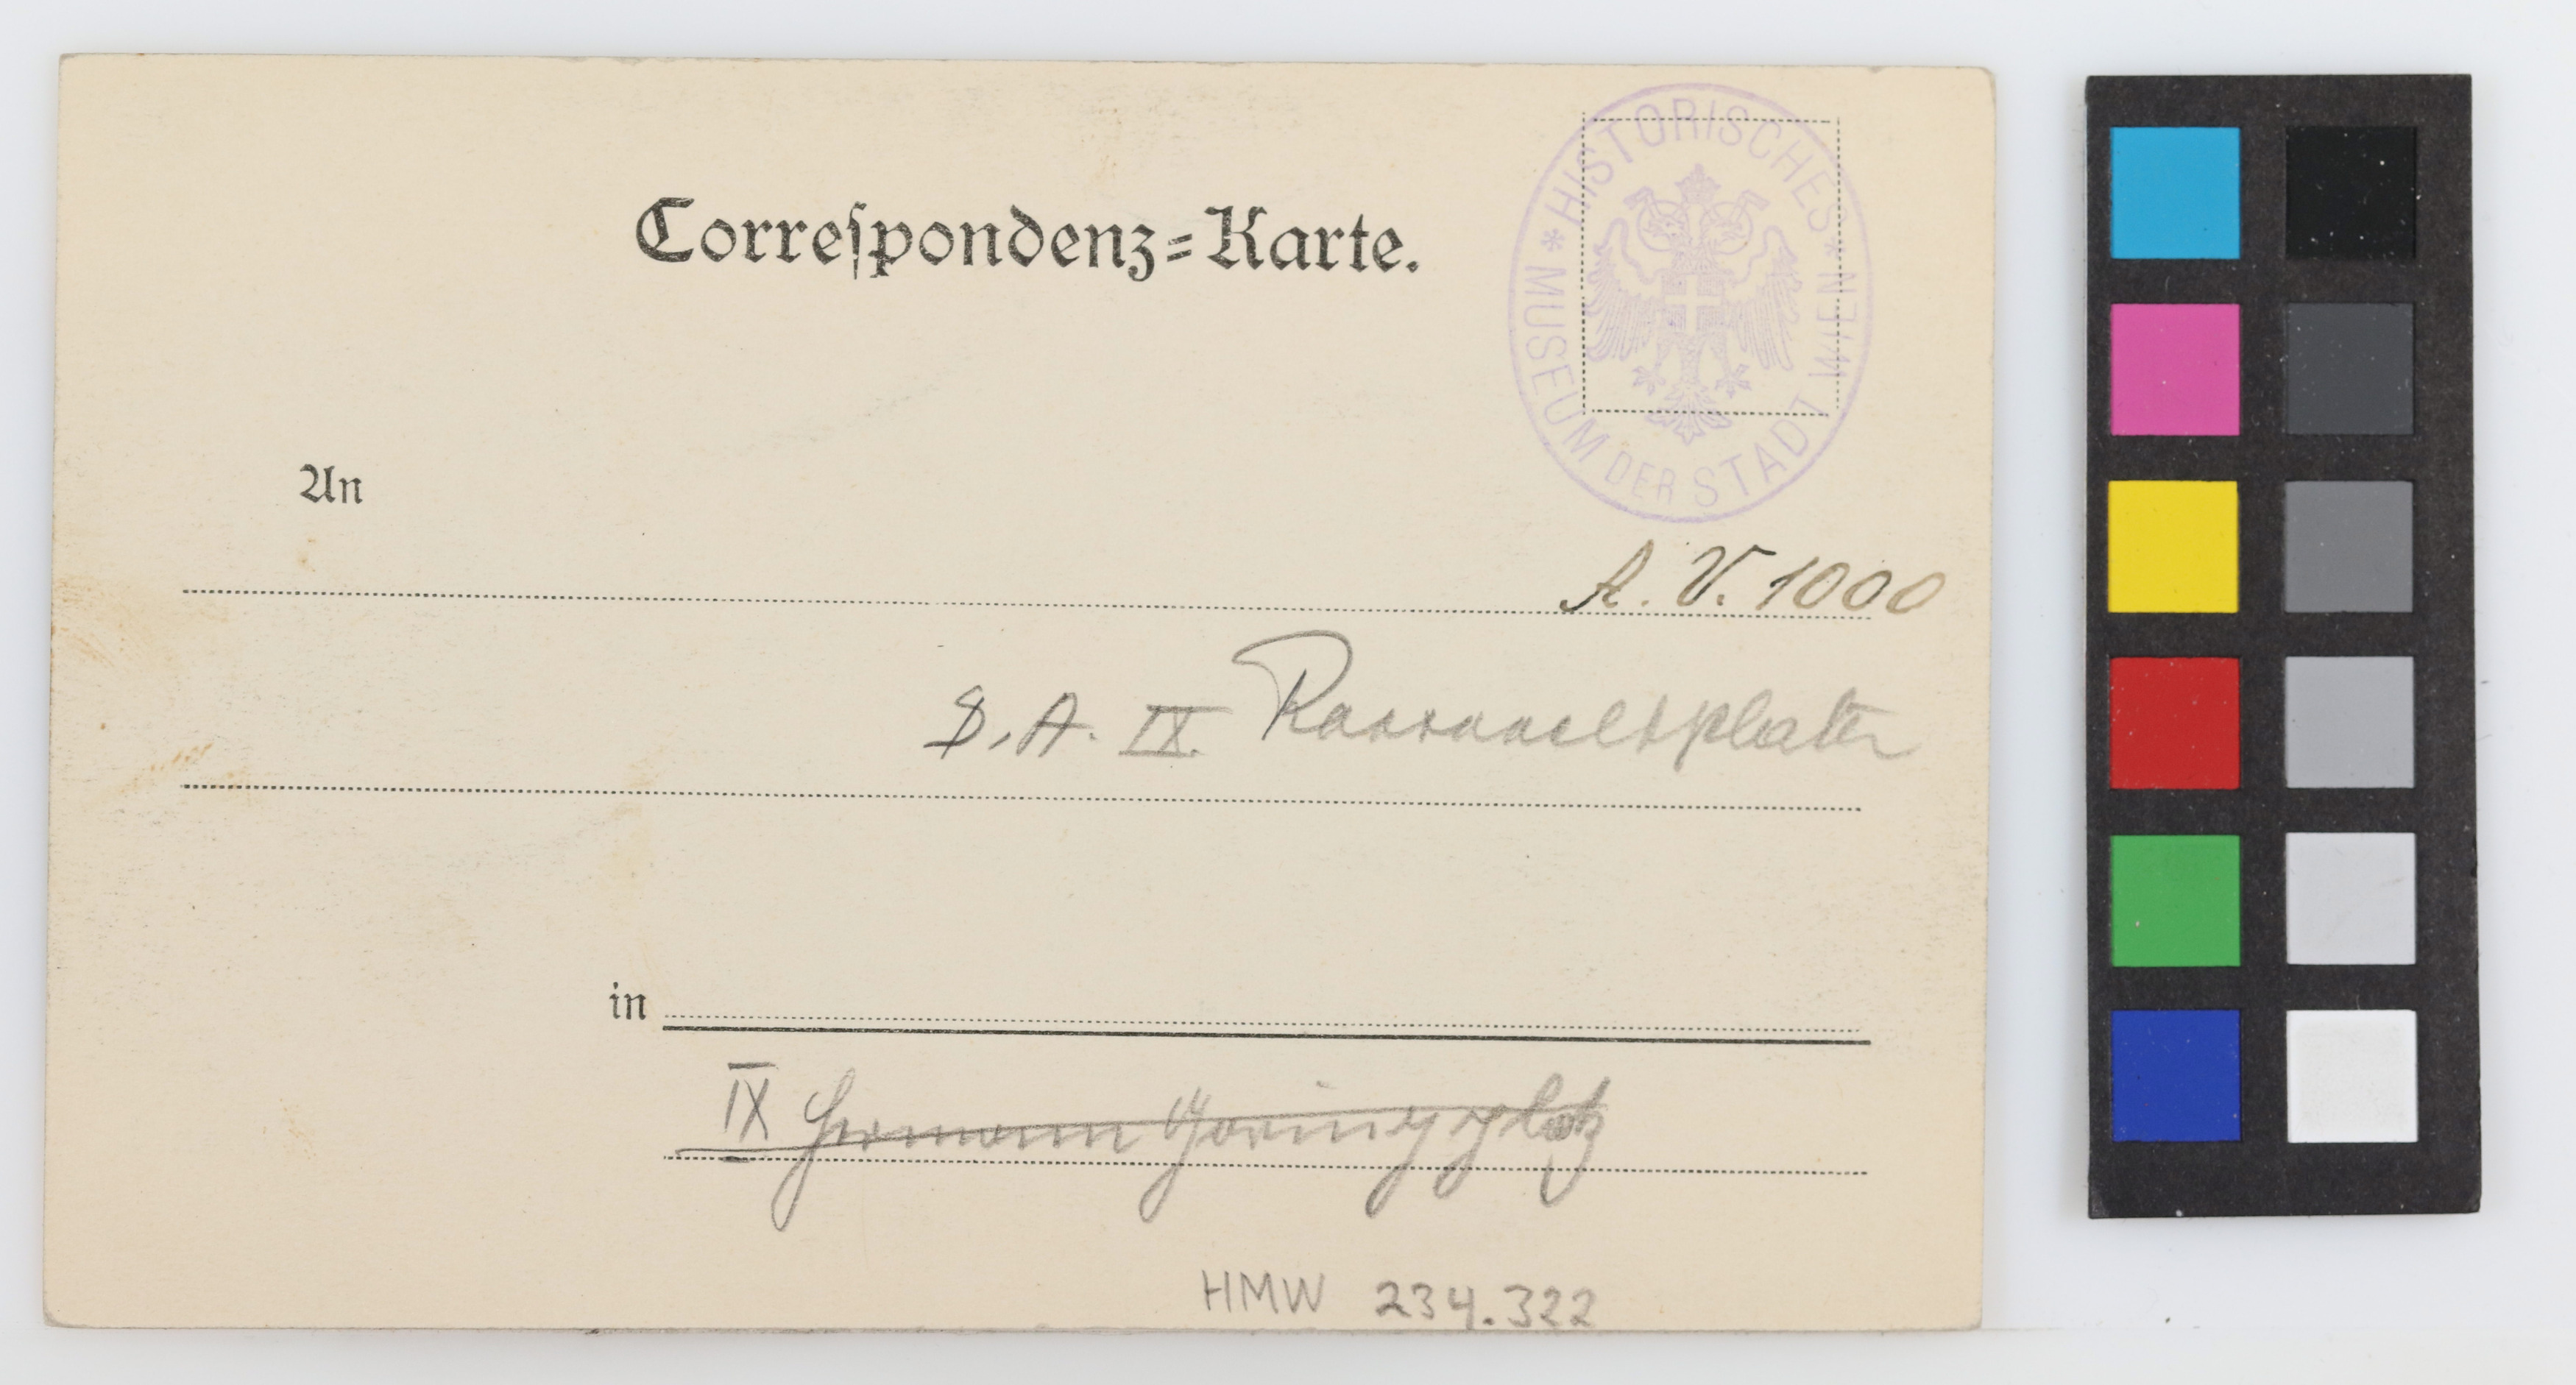 Correſpondenz=Karte.
* HISTORISCHES * MUSEUM DER STADT WIEN
An
A. V. 1000
S. A. IX. Rooseveltplatz
in
IX Hermann Göring platz
HMW 234.322